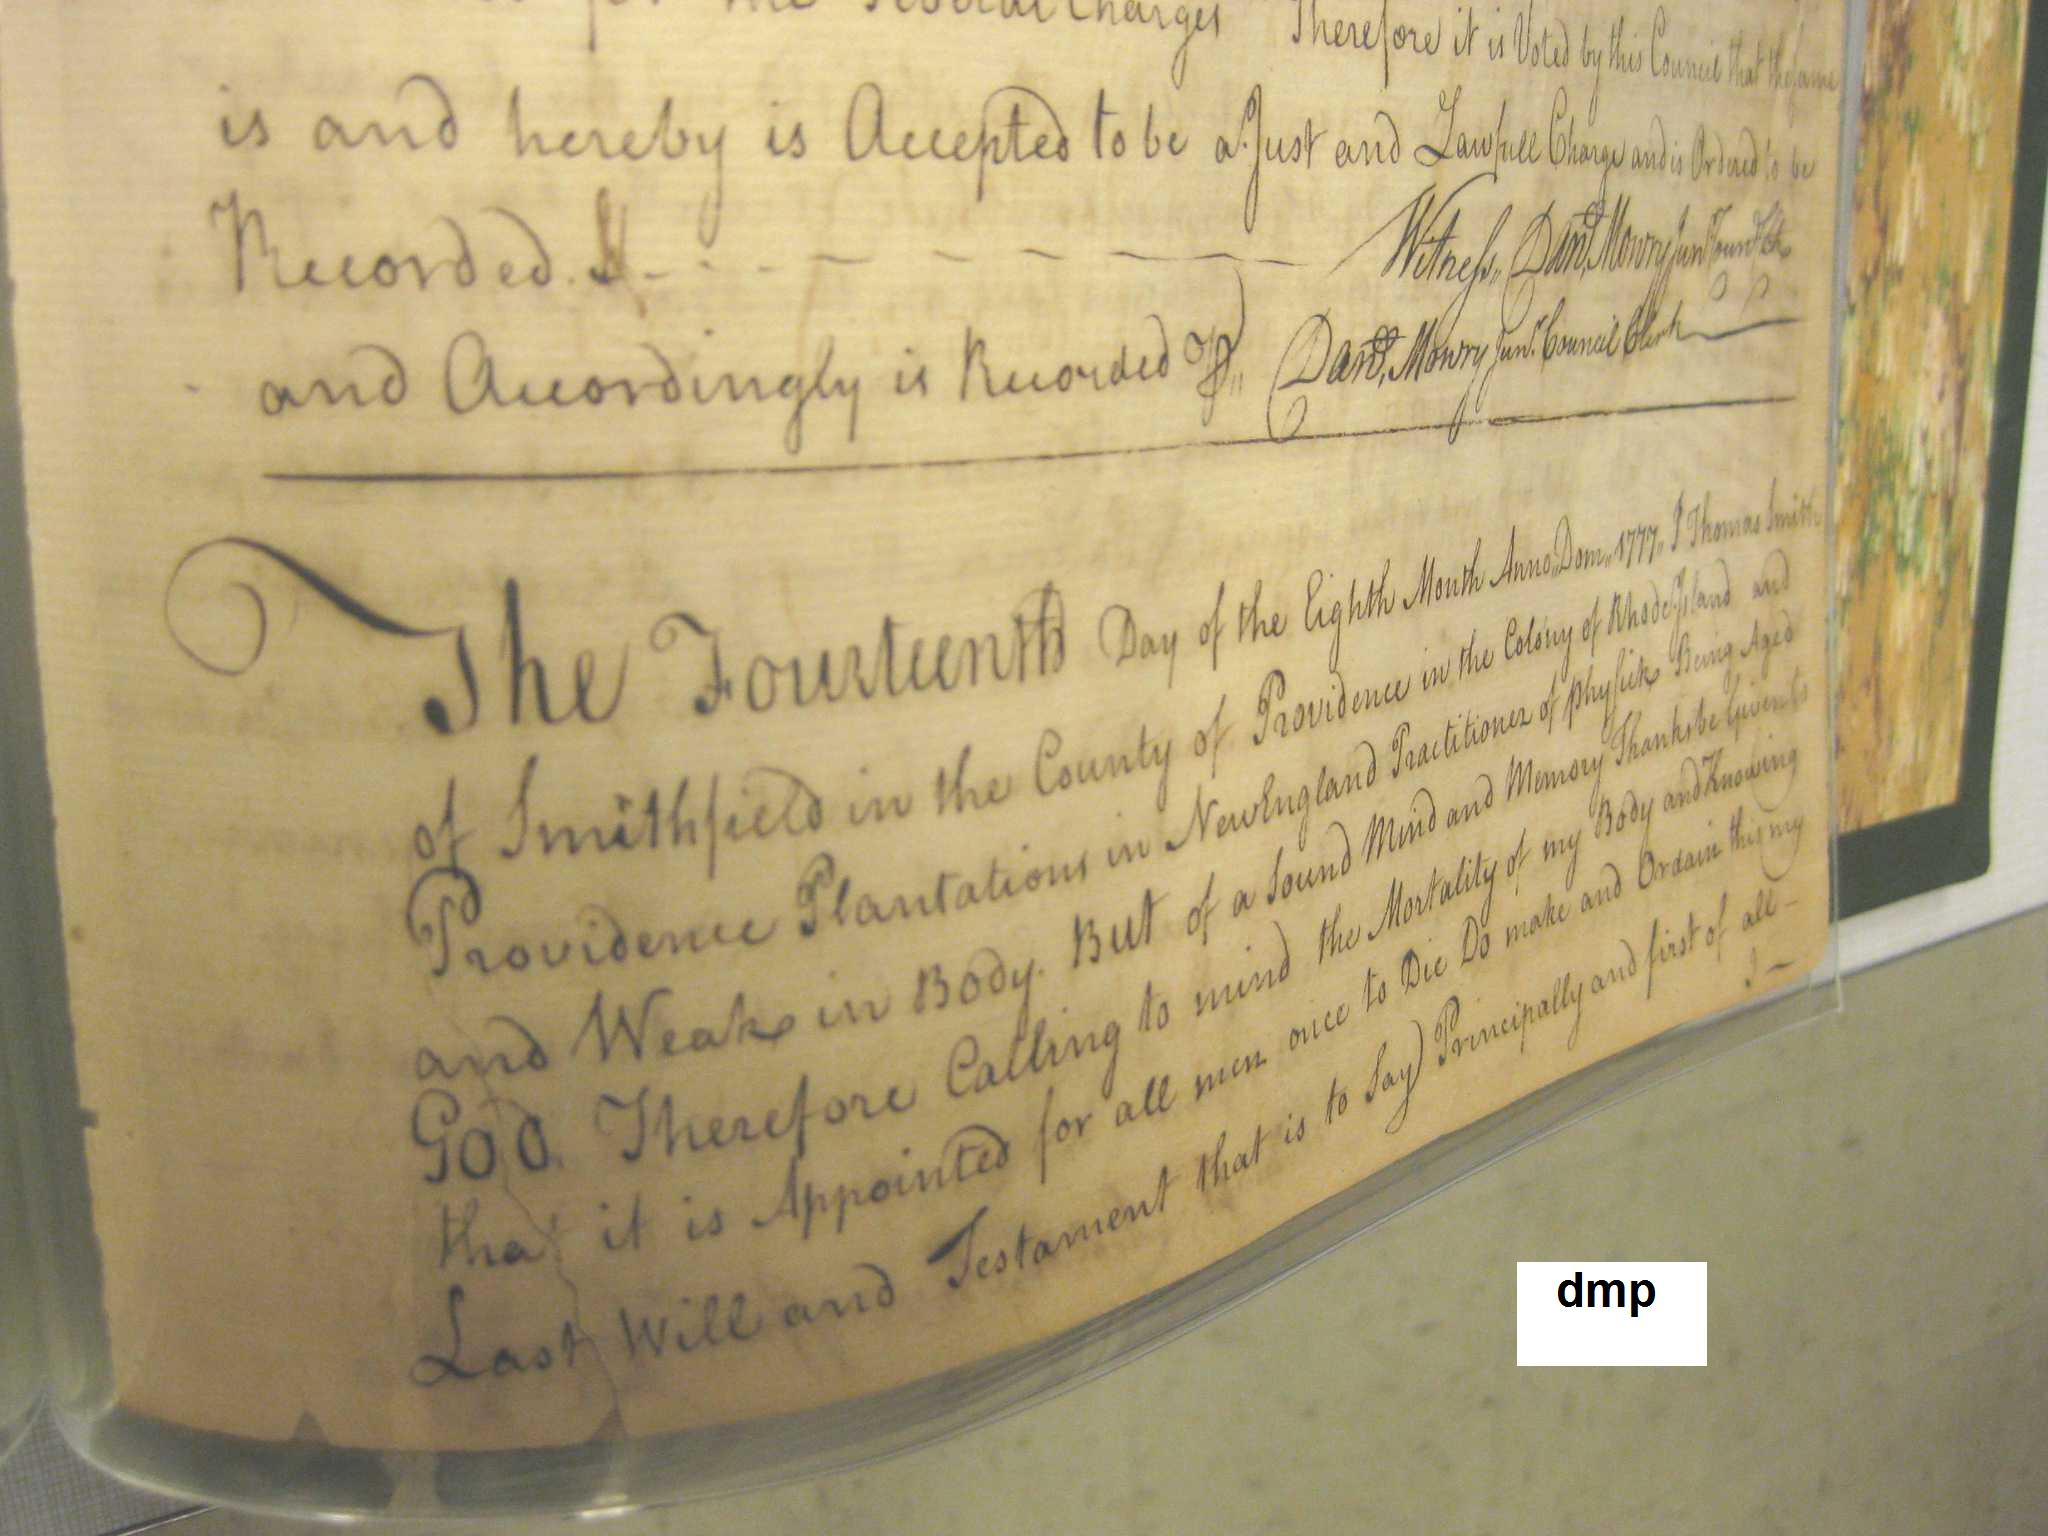 the Several Charges Therefore it is Voted by this Council that the same
is and hereby is Accepted to be a Just and Lawfull Charge and is Ordered to be
Recorded. Witness,, Danll. Mowry Junr Counl Clk
and Accordingly is Recorded P,, Danll. Mowry Junr. Council Clerk
The Fourteenth Day of the Eighth Month Anno,,Dom,,1777,, I Thomas Smith
of Smithfield in the County of Providence in the Colony of Rhode Island and
Providence Plantations in New England Practitioner of Physick Being Aged
and Weak in Body. But of a Sound Mind and Memory Thanks be Given to
God. Therefore Calling to mind the Mortality of my Body and Knowing
that it is Appointed for all men once to Die Do make and Ordain this my
Last Will and Testament that is to Say) Principally and first of all -
I -
dmp